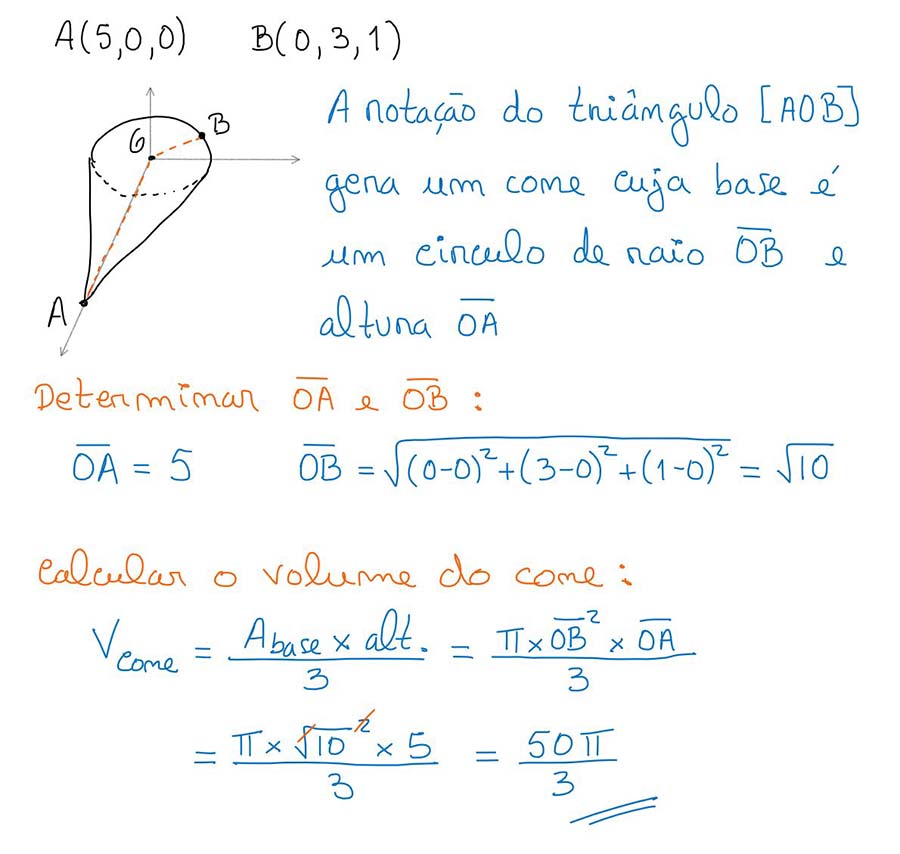 A(5,0,0) B(0,3,1)
A rotação do triângulo [AOB]
gera um cone cuja base é
um círculo de raio O̅B̅ e
altura O̅A̅
O
B
A
Determinar O̅A̅ e O̅B̅ :
O̅A̅ = 5 O̅B̅ = √((0-0)²+(3-0)²+(1-0)²) = √10
Calcular o volume do cone:
V cone = (A base × alt.)/3 = (π × O̅B̅² × O̅A̅)/3
= (π × √10² × 5)/3 = 50π/3